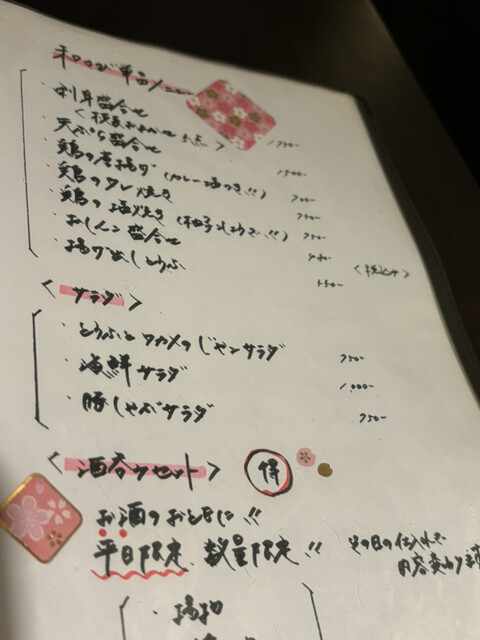 和さび単品メニュー
・刺身盛合せ
＜板長おまかせ 5点＞ 1,330-
・天ぷら盛合せ 1,500-
・鶏の唐揚げ (カレー塩つき!!) 700-
・鶏のタレ焼き 750-
・鶏の塩焼き (柚子こしょうで!!) 750-
・おしんこ盛合せ
・揚げ出しとうふ 550-
＜税込み＞
＜サラダ＞
・とうふとワカメのじゃこサラダ 750-
・海鮮サラダ 1,000-
・豚しゃぶサラダ 750-
＜酒呑みセット＞ 得
お酒のおともに!!
平日限定、数量限定!!
その日の仕入れで
内容変わります
・揚物